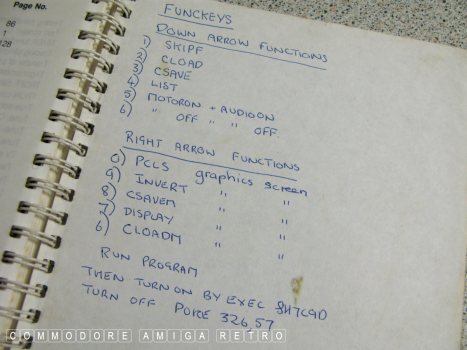 Page No.
86
1
128
FUNCKEYS
DOWN ARROW FUNCTIONS
1) SKIPF
2) CLOAD
3) CSAVE
4) LIST
5) MOTORON + AUDIOON
6) " OFF " " OFF
RIGHT ARROW FUNCTIONS
0) PCLS graphics screen
9) INVERT " "
8) CSAVEM " "
7) DISPLAY " "
6) CLOADM " "
RUN PROGRAM
THEN TURN ON BY EXEC &H7C9D
TURN OFF POKE 326,57
COMMODORE AMIGA RETRO